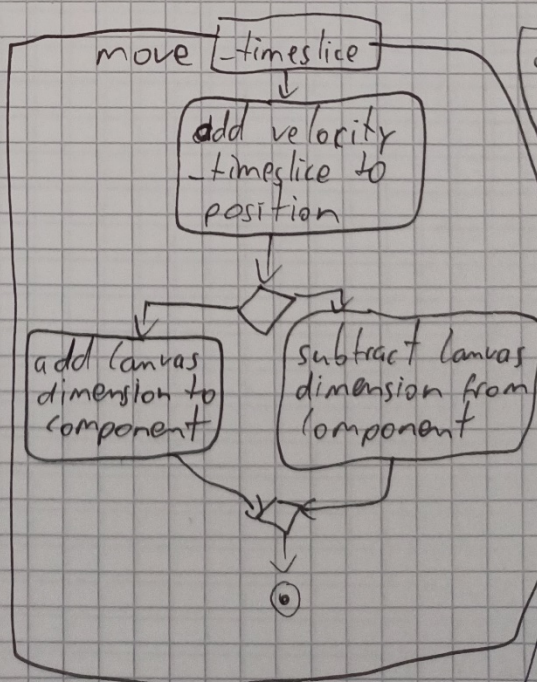 move _timeslice
add velocity
_timeslice to
position
add canvas
dimension to
component
subtract canvas
dimension from
component